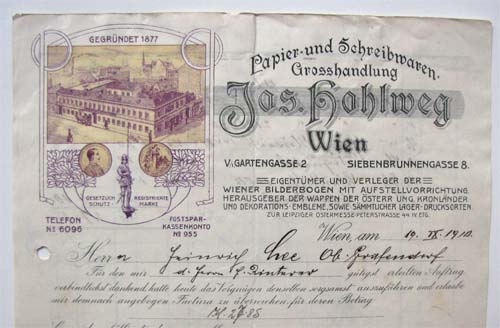 GEGRÜNDET 1877
Papier- und Schreibwaren.
Grosshandlung
Jos. Hohlweg
Wien
V., GARTENGASSE 2 SIEBENBRUNNENGASSE 8.
EIGENTÜMER UND VERLEGER DER
WIENER BILDERBOGEN MIT AUFSTELLVORRICHTUNG.
HERAUSGEBER DER WAPPEN DER ÖSTERR. UNG. KRONLÄNDER
UND DEKORATIONS-EMBLEME, SOWIE SÄMTLICHER LAGER-DRUCKSORTEN.
ZUR LEIPZIGER OSTERMESSE-PETERSTRASSE 44 IV ETG.
GESETZLICH REGISTRIERTE
SCHUTZ MARKE
TELEFON
No 6096
POSTSPAR-
KASSENKONTO
No 955
Wien, am 19. 1910.
Herrn Heinrich Ob. Grafendorf
Für den mir d. Herrn gütigst erteilten Auftrag
verbindlichst dankend, hatte heute das Vergnügen denselben sorgsamst auszuführen und erlaube
mir demnach angebogen Factura zu überreichen, für deren Betrag
K 27.85